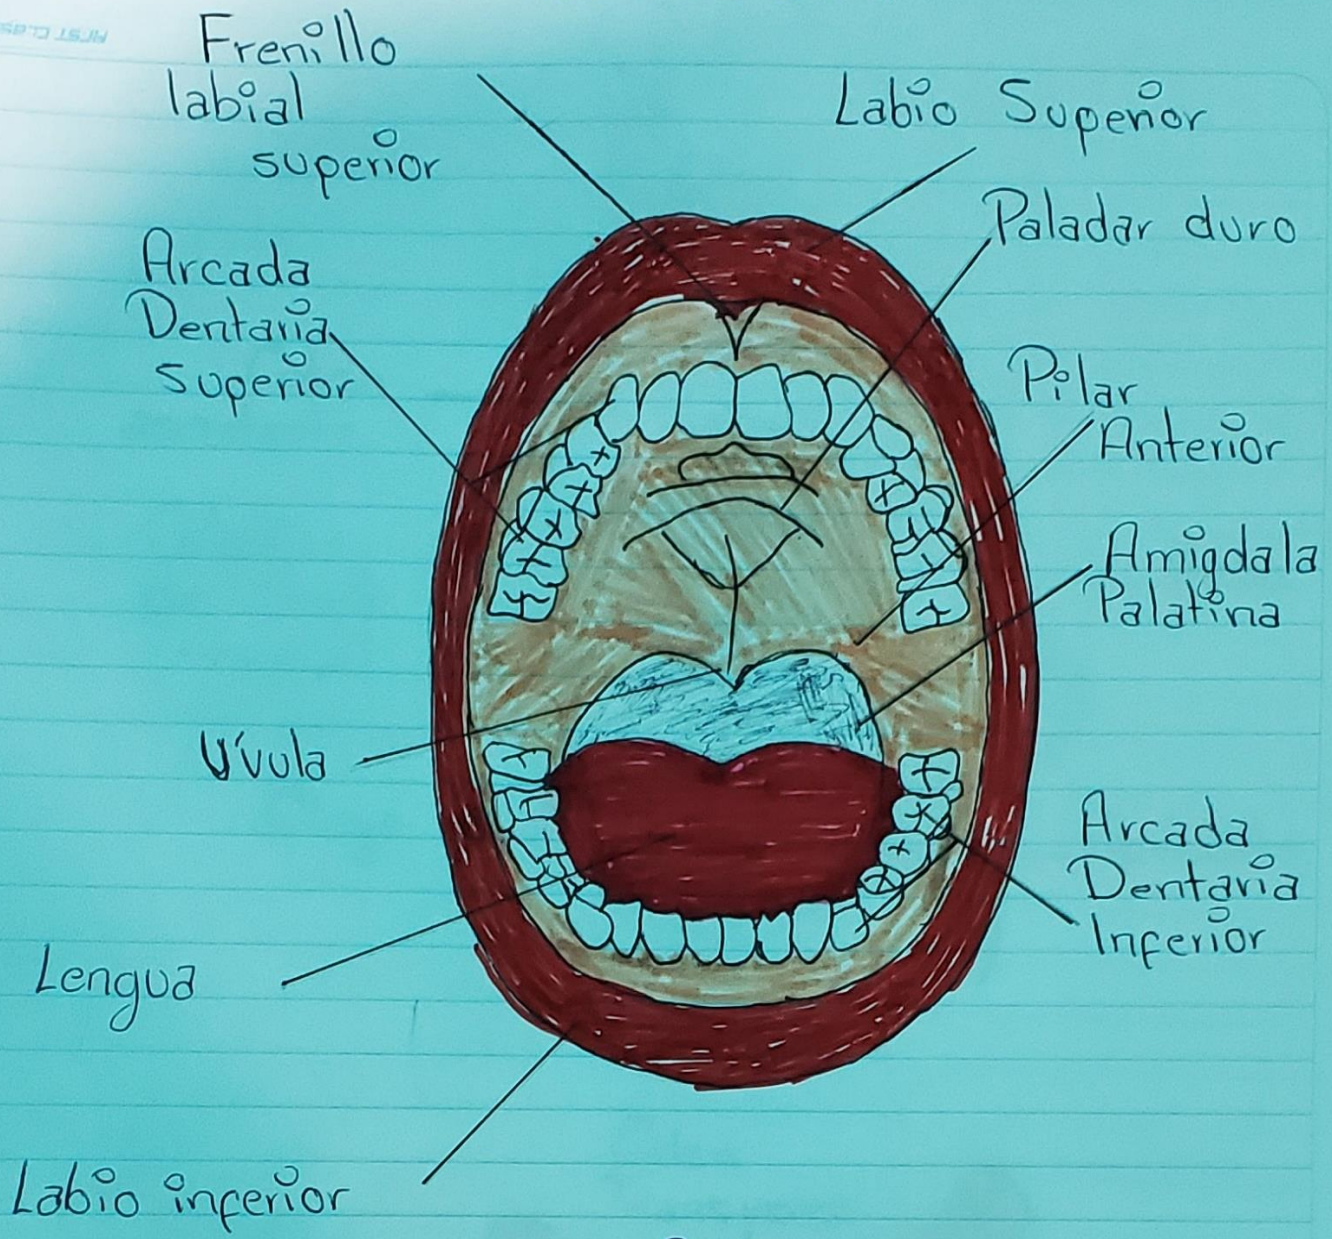 FIRST CLASS
Frenillo
labial
superior
Labio Superior
Paladar duro
Arcada
Dentaria
superior
Pilar
Anterior
Amigdala
Palatina
Úvula
Arcada
Dentaria
Inferior
Lengua
Labio inferior